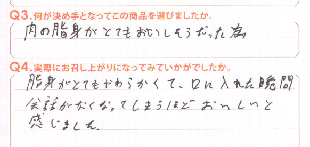 Q3.何が決め手となってこの商品を選びましたか。
肉の脂身がとてもおいしそうだった為
Q4.実際にお召し上がりになってみていかがでしたか。
脂身がとてもやわらかくて、口に入れた瞬間
会話がなくなってしまうほどおいしいと
感じました。